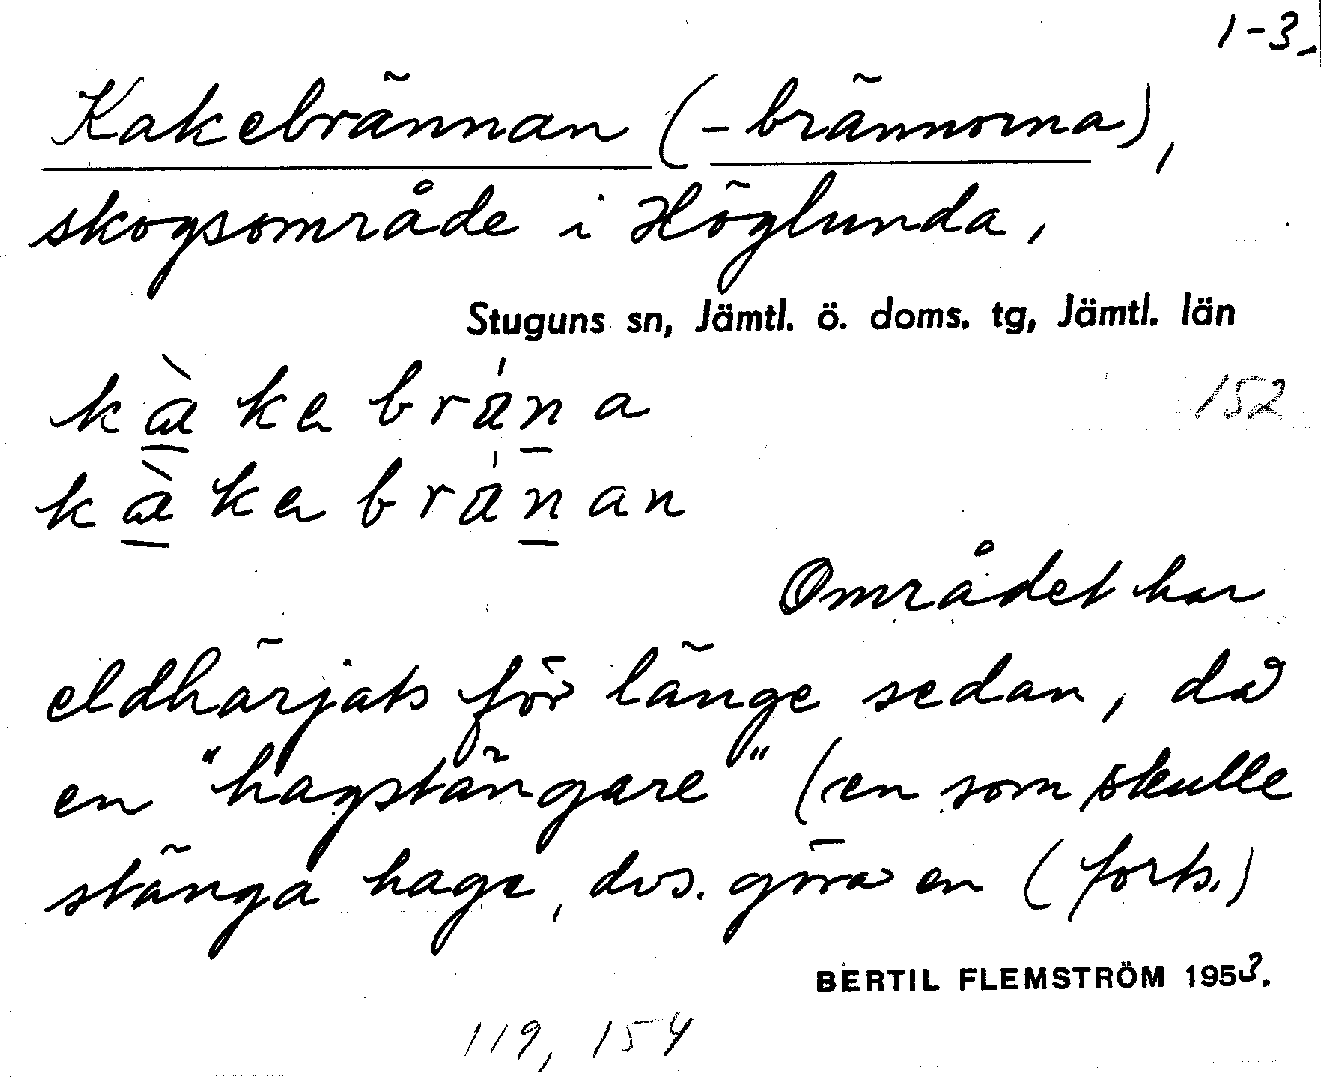 1-3.
Kakebrännan (-brännorna),
skogsområde i Höglunda,
Stuguns sn, Jämtl. ö. doms. tg, Jämtl. län
152
Området har
eldhärjats för länge sedan, då
en "hagstängare" (en som skulle
stänga hage, dvs. göra en (forts.)
BERTIL FLEMSTRÖM 1953.
119, 154